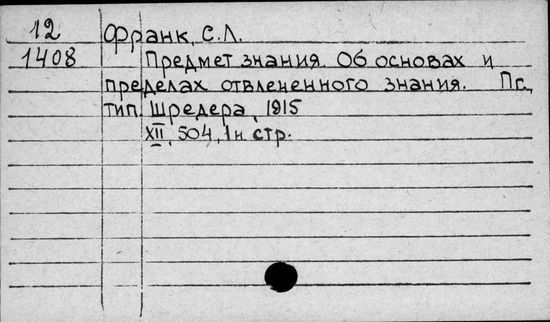 12 Франк, С.Л.
1408 Предмет знания. Об основах и
пределах отвлеченного знания. Пг.,
тип. Шредера, 1915
XII, 504, 1 н. стр.